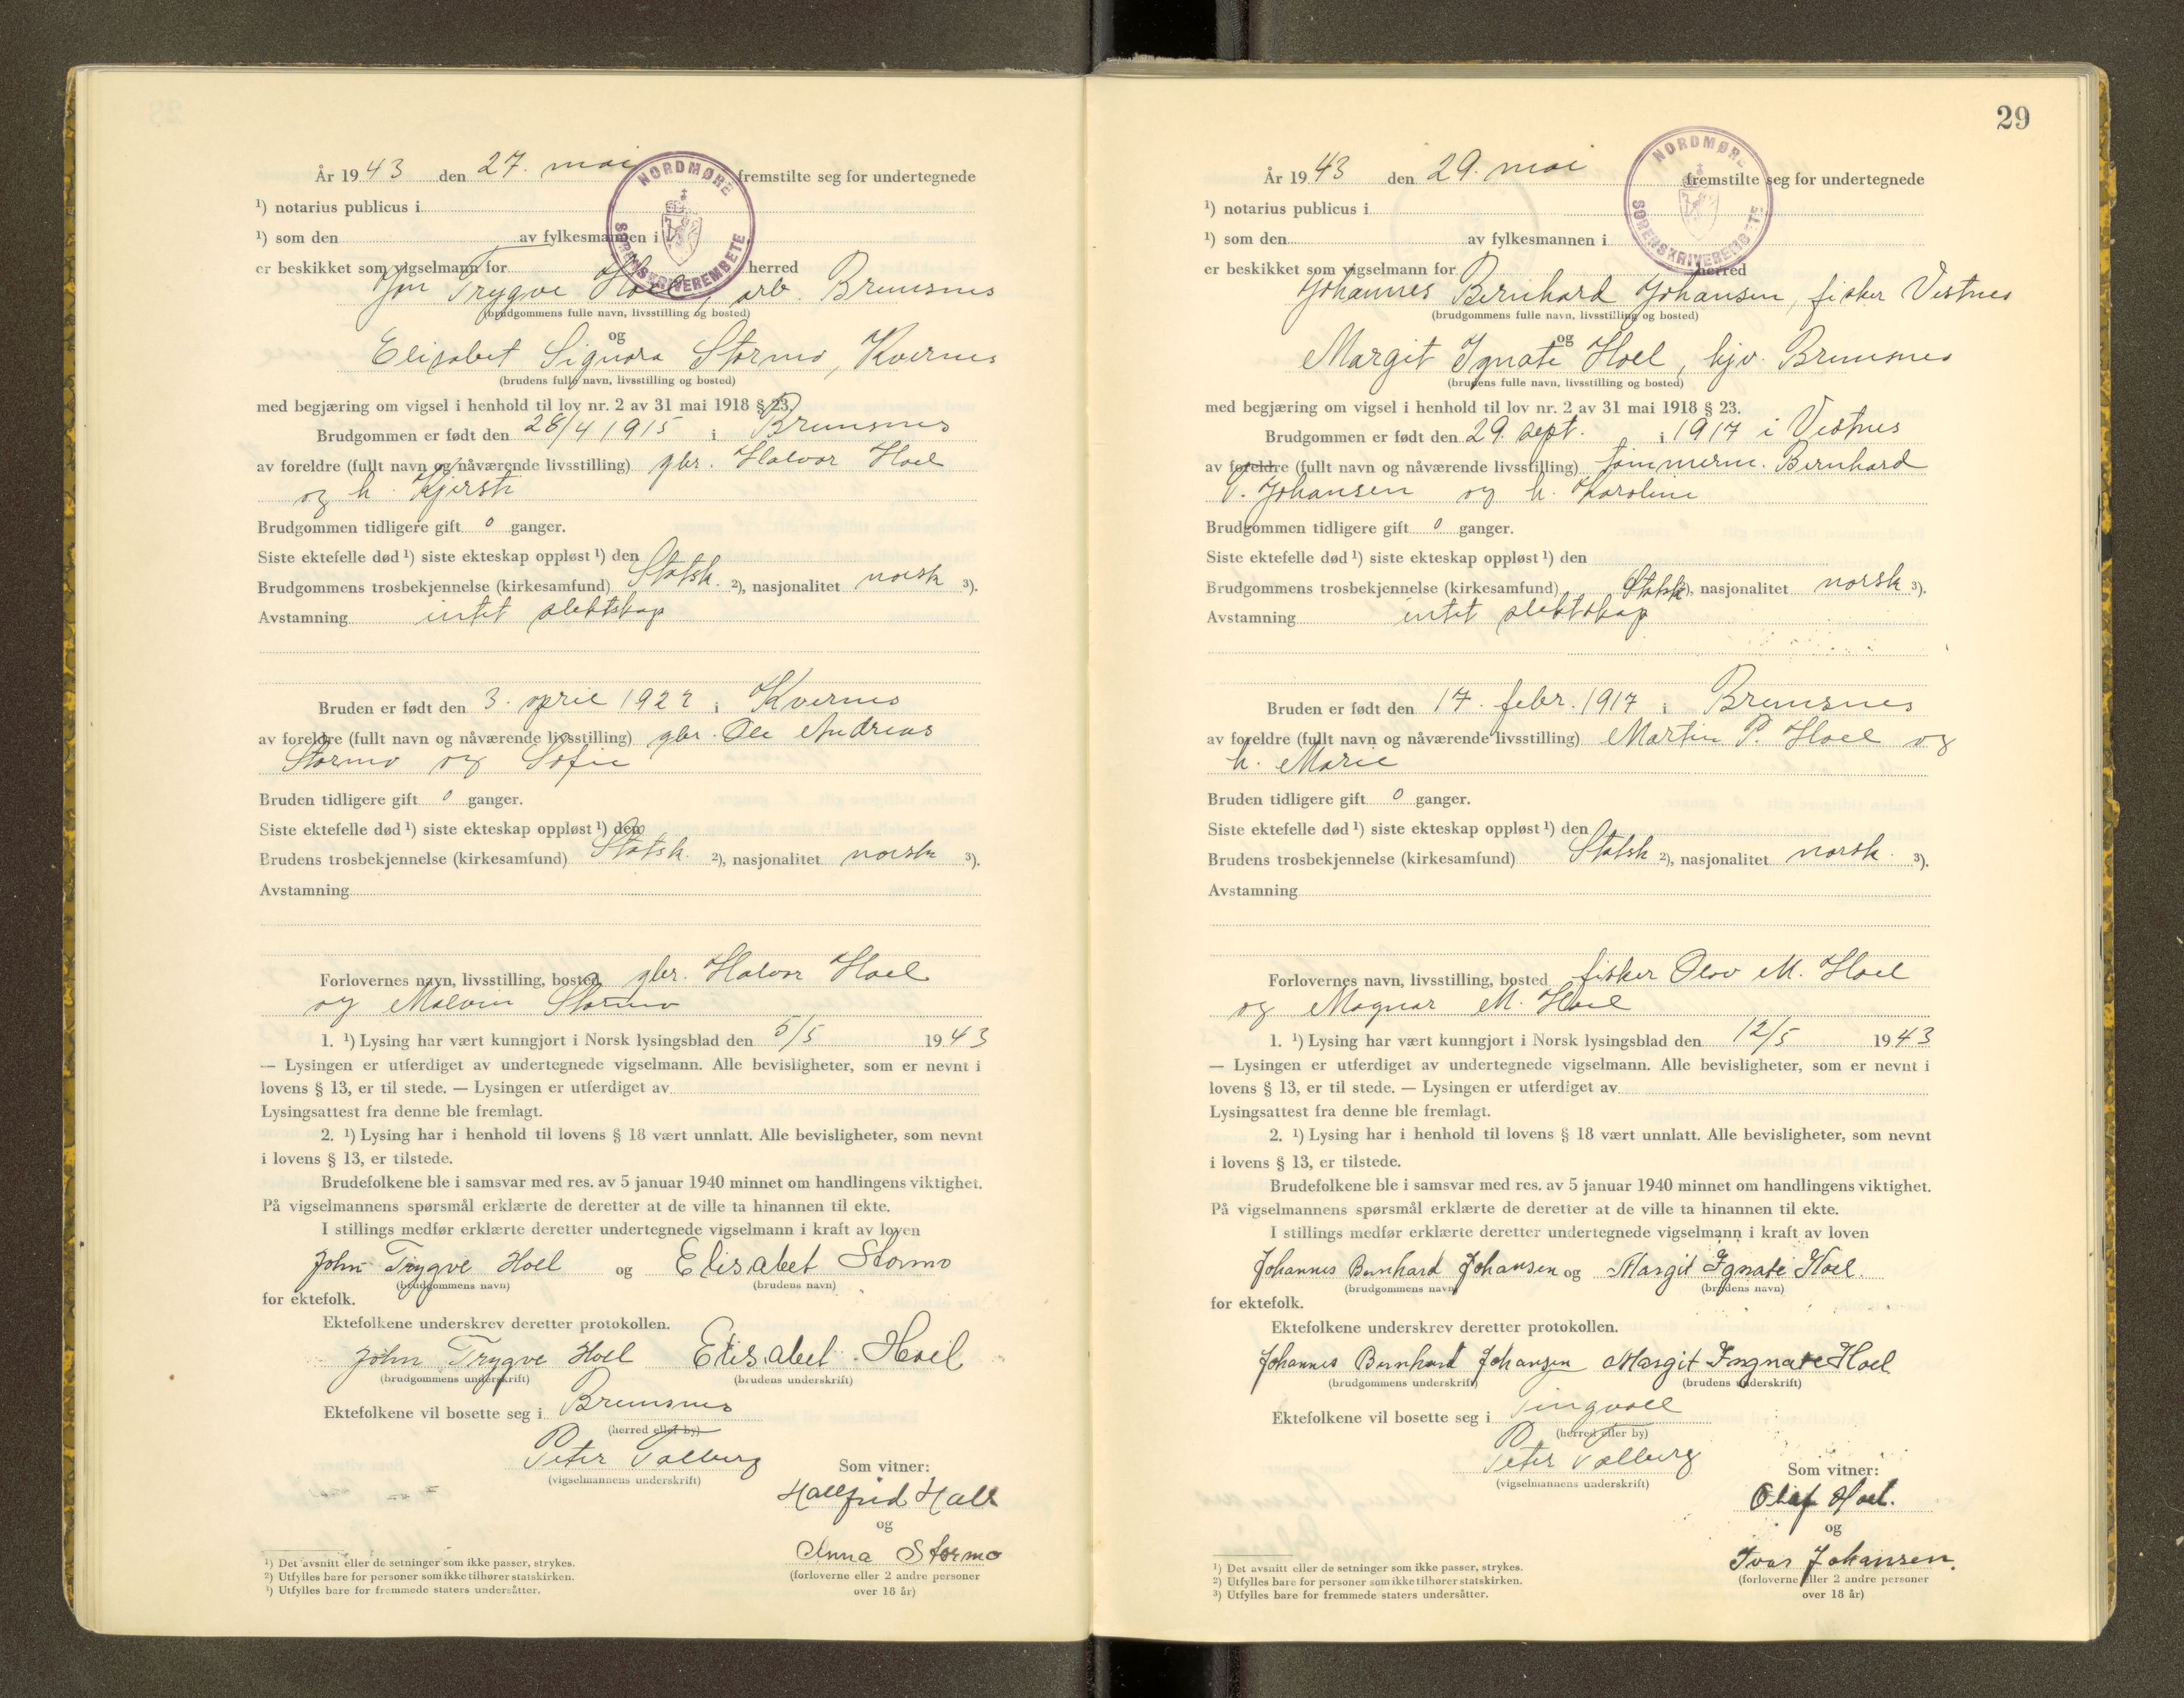 År 1943 den 27. mai fremstilte seg for undertegnede
¹) notarius publicus i
¹) som den av fylkesmannen i
er beskikket som vigselmann for herred
NORDMØRE SORENSKRIVEREMBETE
Jon Trygve Hoel, arb. Bremsnes
(brudgommens fulle navn, livsstilling og bosted)
og
Elisabet Signora Stormo, Kvernes
(brudens fulle navn, livsstilling og bosted)
med begjæring om vigsel i henhold til lov nr. 2 av 31 mai 1918 § 23.
Brudgommen er født den 28/4 1915 i Bremsnes
av foreldre (fullt navn og nåværende livsstilling) gbr. Halvor Hoel
og h. Kjersti
Brudgommen tidligere gift 0 ganger.
Siste ektefelle død ¹) siste ekteskap oppløst ¹) den
Brudgommens trosbekjennelse (kirkesamfund) Statsk. ²), nasjonalitet norsk ³).
Avstamning intet slektskap
Bruden er født den 3. april 1922 i Kvernes
av foreldre (fullt navn og nåværende livsstilling) gbr. Ole Andreas
Stormo og Sofie
Bruden tidligere gift 0 ganger.
Siste ektefelle død ¹) siste ekteskap oppløst ¹) den
Brudens trosbekjennelse (kirkesamfund) Statsk. ²), nasjonalitet norsk ³).
Avstamning
Forlovernes navn, livsstilling, bosted gbr. Halvor Hoel
og Malvin Stormo
1. ¹) Lysing har vært kunngjort i Norsk lysingsblad den 5/5 1943
— Lysingen er utferdiget av undertegnede vigselmann. Alle bevisligheter, som er nevnt i
lovens § 13, er til stede. — Lysingen er utferdiget av
Lysingsattest fra denne ble fremlagt.
2. ¹) Lysing har i henhold til lovens § 18 vært unnlatt. Alle bevisligheter, som nevnt
i lovens § 13, er tilstede.
Brudefolkene ble i samsvar med res. av 5 januar 1940 minnet om handlingens viktighet.
På vigselmannens spørsmål erklærte de deretter at de ville ta hinannen til ekte.
I stillings medfør erklærte deretter undertegnede vigselmann i kraft av loven
John Trygve Hoel og Elisabet Stormo
(brudgommens navn) (brudens navn)
for ektefolk.
Ektefolkene underskrev deretter protokollen.
John Trygve Hoel Elisabet Hoel
(brudgommens underskrift) (brudens underskrift)
Ektefolkene vil bosette seg i Bremsnes
(herred eller by)
Peter Tølberg
(vigselmannens underskrift)
Som vitner:
Hallfrid Hall
og
Anna Stormo
(forloverne eller 2 andre personer
over 18 år)
¹) Det avsnitt eller de setninger som ikke passer, strykes.
²) Utfylles bare for personer som ikke tilhører statskirken.
³) Utfylles bare for fremmede staters undersåtter.
29
År 1943 den 29. mai fremstilte seg for undertegnede
¹) notarius publicus i
¹) som den av fylkesmannen i
er beskikket som vigselmann for herred
NORDMØRE SORENSKRIVEREMBETE
Johannes Bernhard Johansen, fisker Vestnes
(brudgommens fulle navn, livsstilling og bosted)
og
Margit Ignate Hoel, hjv. Bremsnes
(brudens fulle navn, livsstilling og bosted)
med begjæring om vigsel i henhold til lov nr. 2 av 31 mai 1918 § 23.
Brudgommen er født den 29. sept. i 1917 i Vestnes
av foreldre (fullt navn og nåværende livsstilling) tømmerm. Bernhard
V. Johansen og h. Karoline
Brudgommen tidligere gift 0 ganger.
Siste ektefelle død ¹) siste ekteskap oppløst ¹) den
Brudgommens trosbekjennelse (kirkesamfund) Statsk ²), nasjonalitet norsk ³).
Avstamning intet slektskap
Bruden er født den 17. febr. 1917 i Bremsnes
av foreldre (fullt navn og nåværende livsstilling) Martin P. Hoel og
h. Marie
Bruden tidligere gift 0 ganger.
Siste ektefelle død ¹) siste ekteskap oppløst ¹) den
Brudens trosbekjennelse (kirkesamfund) Statsk ²), nasjonalitet norsk. ³).
Avstamning
Forlovernes navn, livsstilling, bosted fisker Olav M. Hoel
og Magnar M. Hoel
1. ¹) Lysing har vært kunngjort i Norsk lysingsblad den 12/5 1943
— Lysingen er utferdiget av undertegnede vigselmann. Alle bevisligheter, som er nevnt i
lovens § 13, er til stede. — Lysingen er utferdiget av
Lysingsattest fra denne ble fremlagt.
2. ¹) Lysing har i henhold til lovens § 18 vært unnlatt. Alle bevisligheter, som nevnt
i lovens § 13, er tilstede.
Brudefolkene ble i samsvar med res. av 5 januar 1940 minnet om handlingens viktighet.
På vigselmannens spørsmål erklærte de deretter at de ville ta hinannen til ekte.
I stillings medfør erklærte deretter undertegnede vigselmann i kraft av loven
Johannes Bernhard Johansen og Margit Ignate Hoel.
(brudgommens navn) (brudens navn)
for ektefolk.
Ektefolkene underskrev deretter protokollen.
Johannes Bernhard Johansen Margit Ingnate Hoel
(brudgommens underskrift) (brudens underskrift)
Ektefolkene vil bosette seg i Tingvoll
(herred eller by)
Peter Tølberg
(vigselmannens underskrift)
Som vitner:
Olaf Hoel.
og
Ivar Johansen.
(forloverne eller 2 andre personer
over 18 år)
¹) Det avsnitt eller de setninger som ikke passer, strykes.
²) Utfylles bare for personer som ikke tilhører statskirken.
³) Utfylles bare for fremmede staters undersåtter.